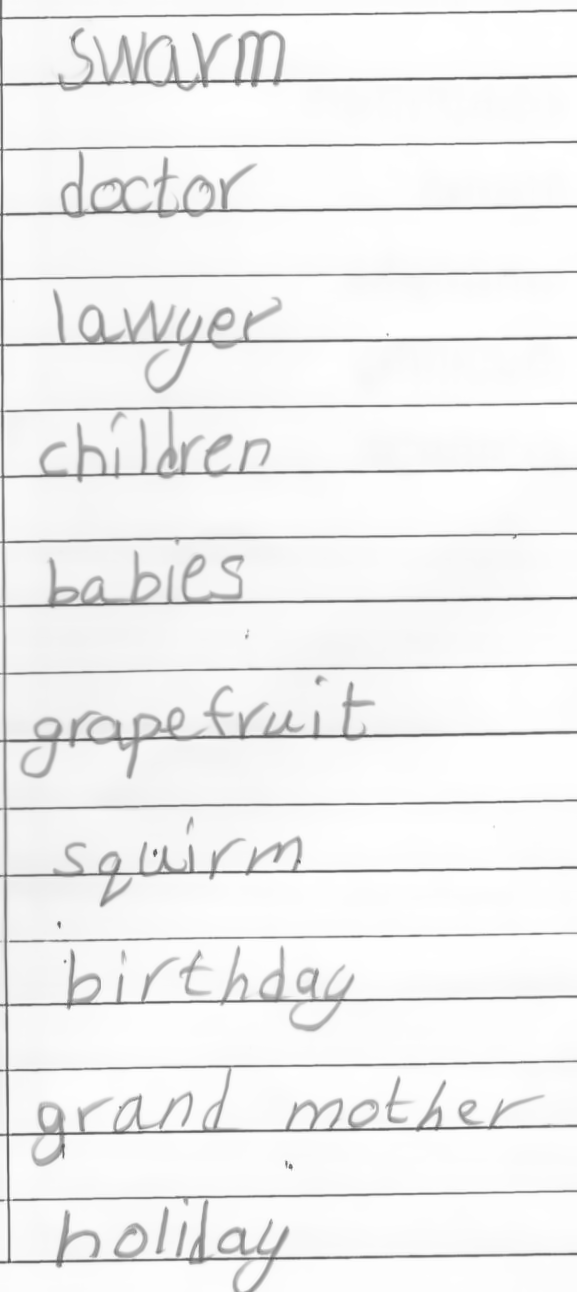 swarm
doctor
lawyer
children
babies
grapefruit
squirm
birthday
grand mother
holiday